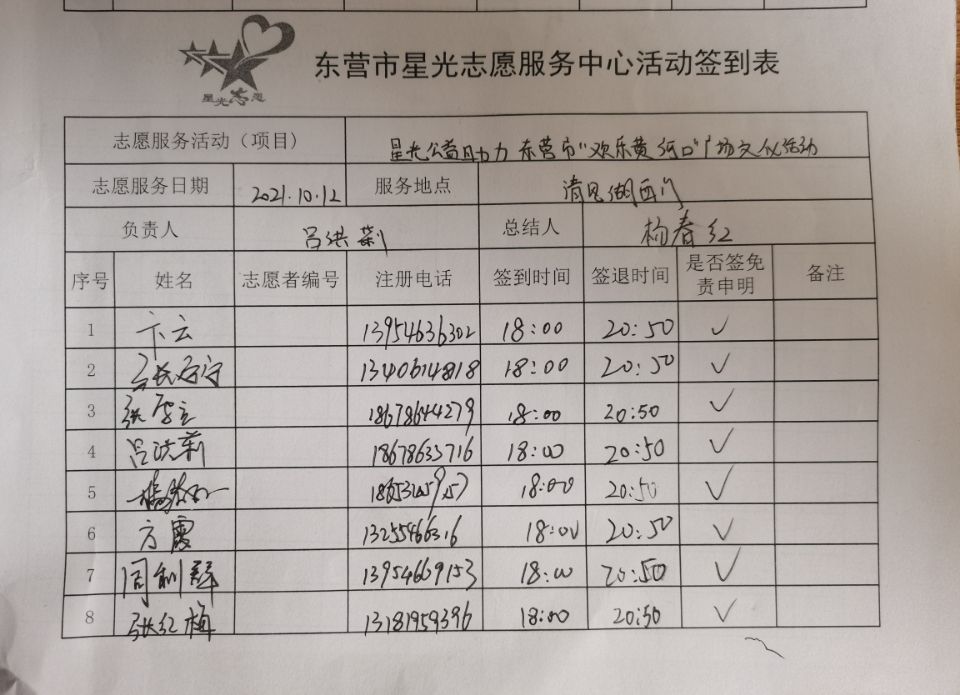 星光志愿
东营市星光志愿服务中心活动签到表
志愿服务活动（项目） 星光公益助力东营市"欢乐黄河口"广场文化活动
志愿服务日期 2021.10.12 服务地点 清风湖西门
负责人 吕洪莉 总结人 杨春红
序号 姓名 志愿者编号 注册电话 签到时间 签退时间 是否签免责申明 备注
1 卞云 13954636302 18:00 20:50 ✓
2 13406144818 18:00 20:50 ✓
3 18678644279 18:00 20:50 ✓
4 吕洪莉 18678633716 18:00 20:50 ✓
5 18:00 20:50 ✓
6 方霞 13255466316 18:00 20:50 ✓
7 周利群 13954669153 18:00 20:50 ✓
8 张红梅 13181959396 18:00 20:50 ✓